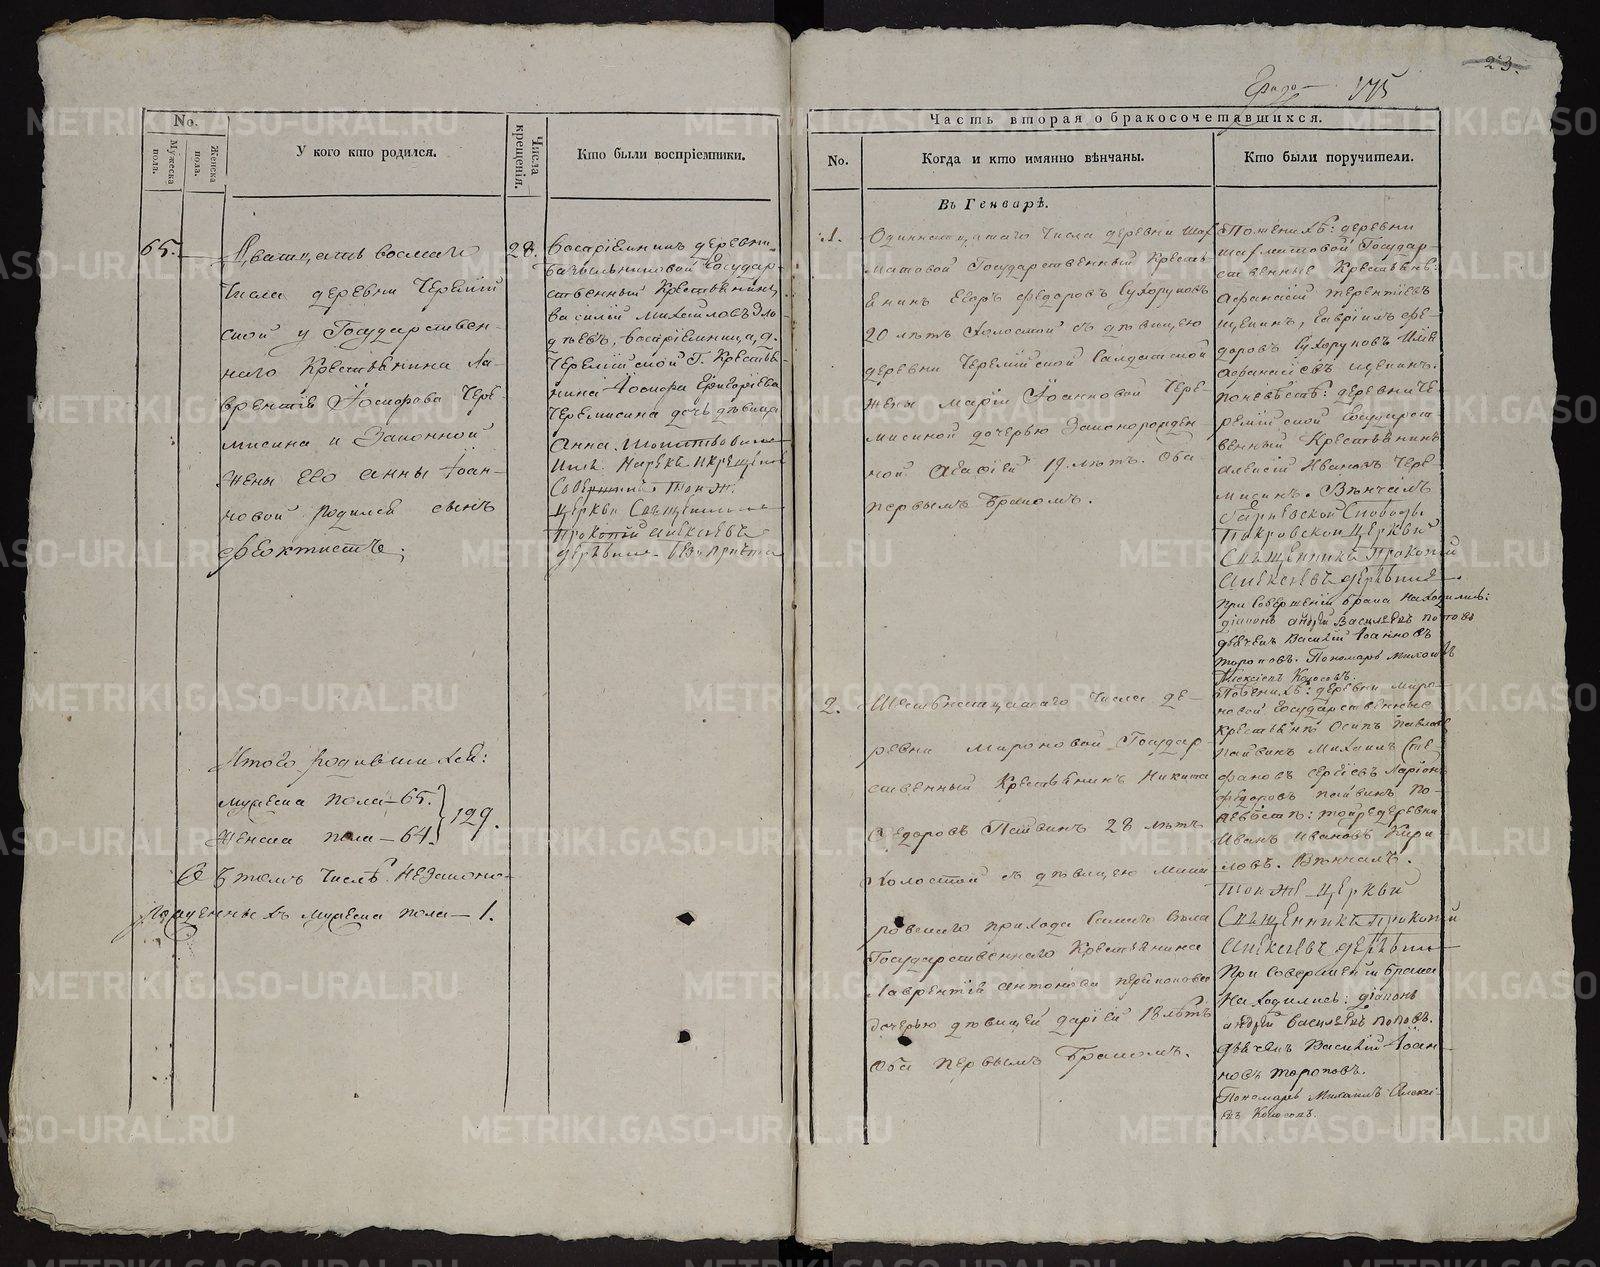 No.
Мужеска пола.
Женска пола.
У кого кто родился.
Числа крещенія.
Кто были воспріемники.
65.
Дватцать восмаго
числа деревни Черемис
ской у Государствен-
наго Крестьянина Ла-
врентія Іосифова Чере-
мисина и законной
жены его Анны Іоан-
новой родился сынъ
Феоктистъ;
28.
Воспріемникъ деревни
Государ-
ственный Крестьянинъ
Василій Михайловъ
воспріемница, д.
Черемисской Г. Крестья-
нина Іосифа Григорьева
Черемисина дочь девица
Анна. Молитвовали
Имя. Нарекъ и Крещеніе
Совершилъ тояж.
Церкви Священникъ
Прокопій Алексіевъ
Итого родившихся:
мужеска пола – 65.
женска пола – 64.
129.
Въ томъ числѣ. Незаконно-
рожденныхъ мужеска пола – 1.
23.
175
Часть вторая о бракосочетавшихся.
No.
Когда и кто имянно вѣнчаны.
Кто были поручители.
Въ Генварѣ.
1.
Одиннатцатаго числа деревни Шах
матовой Государственный Кресть
янинъ Егоръ Федоровъ Сухоруковъ
20 лѣтъ холостой съ дѣвицею
деревни Черемисской Салдатской
жены Маріи Іоанновой Чере-
мисиной дочерью Законорожден
ной Агафіей 19. лѣтъ. Оба
первымъ бракомъ.
По женихѣ: деревни
Шахматовой Государ-
ственные Крестьяне:
Афанасій Терентьевъ
Щепинъ, Гавріилъ Фе-
доровъ Сухоруковъ
Афанасіевъ Щепинъ.
по невѣстѣ: деревни Че-
ремисской Государст
венный Крестьянинъ
Алексій Ивановъ Чере-
мисинъ. Вѣнчалъ
Слободы
Покровской Церкви
Священникъ Прокопій
Алексіевъ
При Совершеніи брака находились:
діаконъ Андрей Васильевъ Поповъ
дьячекъ Василій Іоанновъ
Тороповъ. Пономарь Михаилъ
Алексіевъ
2.
Шестьнатцатаго числа де-
ревни Мироновой Государ
ственный Крестьянинъ Никита
Федоровъ Пайвинъ 28 лѣтъ
холостой съ дѣвицею
прихода самаго села
Государственнаго Крестьянина
Лаврентія Антонова
дочерью дѣвицей Даріей 18 лѣтъ
Оба первымъ бракомъ.
По женихѣ: деревни Миро-
новой Государственные
Крестьяне Осипъ Павловъ
Пайвинъ Михаилъ Сте-
фановъ Сергіевъ Ларіонъ
Федоровъ Пайвинъ По-
невѣстѣ: той же деревни
Иванъ Ивановъ Кири
ловъ. Вѣнчалъ.
Тоя же Церкви
Священникъ Прокопій
Алексіевъ
При Совершеніи брака
Находились: діаконъ
Андрей Васильевъ Поповъ.
Дьячекъ Василій Іоан-
новъ Тороповъ.
Пономарь Михаилъ Алексі-
евъ
METRIKI.GASO-URAL.RU